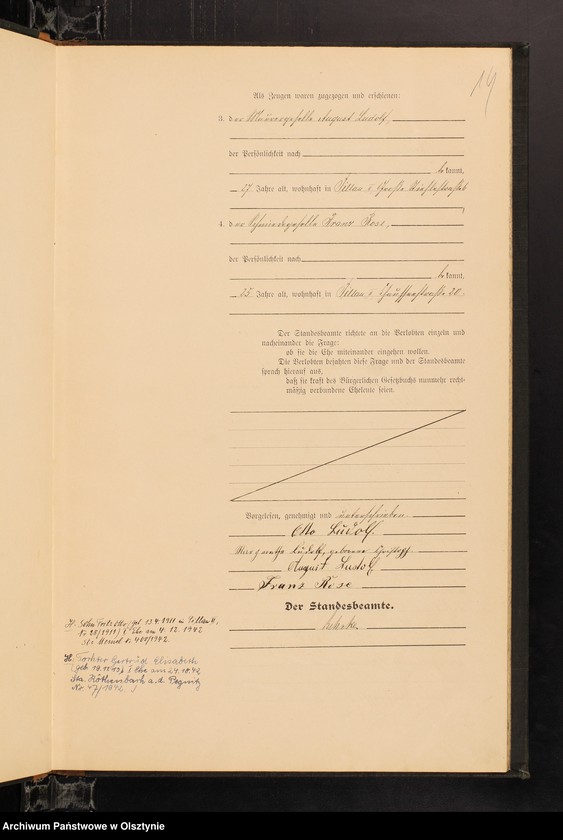 19
Als Zeugen waren zugezogen und erschienen:
3. der Maurergeselle August Ludolf,
der Persönlichkeit nach
bekannt,
27 Jahre alt, wohnhaft in Pillau I, Große
4. der Schmiedegeselle Franz Rose,
der Persönlichkeit nach
bekannt,
25 Jahre alt, wohnhaft in Pillau I, Chausseestraße 20.
Der Standesbeamte richtete an die Verlobten einzeln und
nacheinander die Frage:
ob sie die Ehe miteinander eingehen wollen.
Die Verlobten bejahten diese Frage und der Standesbeamte
sprach hierauf aus,
daß sie kraft des Bürgerlichen Gesetzbuchs nunmehr recht-
mäßig verbundene Eheleute seien.
Vorgelesen, genehmigt und unterschrieben.
Otto Ludolf.
Ludolf, geborene
August Ludolf
Franz Rose
Der Standesbeamte.
H. Sohn Otto, geb. 13.4.1911 in Pillau II,
Nr. 28/1911) I Ehe am 4.12.1942
St. A. Memel Nr. 400/1942.
H. Tochter Gertrud Elisabeth
(geb. 19.10.1913) I Ehe am 24.10.42
Sta. Röthenbach a.d. Pegnitz
No. 47/1942
Archiwum Państwowe w Olsztynie